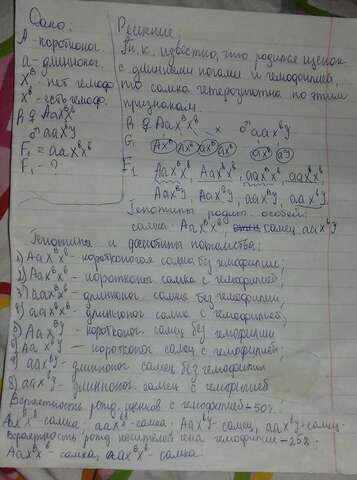 Дано:
А - коротконог.
а - длинноног.
Xᴮ - нет гемоф.
Xᵇ - есть гемоф.
P ♀ AaXᴮXᵇ
♂ aaXᵇY
F₁ = aaXᵇXᵇ
F₁ - ?
Решение:
Т.к. известно, что родился щенок
с длинными ногами и гемофилией,
то самка гетерозиготна по этим
признакам.
P ♀ AaXᴮXᵇ × ♂ aaXᵇY
G: AXᴮ AXᵇ aXᴮ aXᵇ aXᵇ aY
F₁ AaXᴮXᵇ, AaXᵇXᵇ, aaXᴮXᵇ, aaXᵇXᵇ
AaXᴮY, AaXᵇY, aaXᴮY, aaXᵇY
Генотипы родит. особей:
самка AaXᴮXᵇ самец aaXᵇY
Генотипы и фенотипы потомства:
1) AaXᴮXᵇ - коротконогая самка без гемофилии;
2) AaXᵇXᵇ - коротконог. самка с гемофилией;
3) aaXᴮXᵇ - длинноног. самка без гемофилии;
4) aaXᵇXᵇ - длинноног. самка с гемофилией;
5) AaXᴮY - коротконог. самец без гемофилии
6) AaXᵇY - коротконог. самец с гемофилией;
7) aaXᴮY - длинноног. самец без гемофилии
8) aaXᵇY - длинноног. самец с гемофилией
Вероятность рожд. щенков с гемофилией - 50%:
AaXᵇXᵇ - самка; aaXᵇXᵇ - самка; AaXᵇY - самец, aaXᵇY - самец.
Вероятность рожд. носителей гена гемофилии - 25%.
AaXᴮXᵇ - самка, aaXᴮXᵇ - самка.